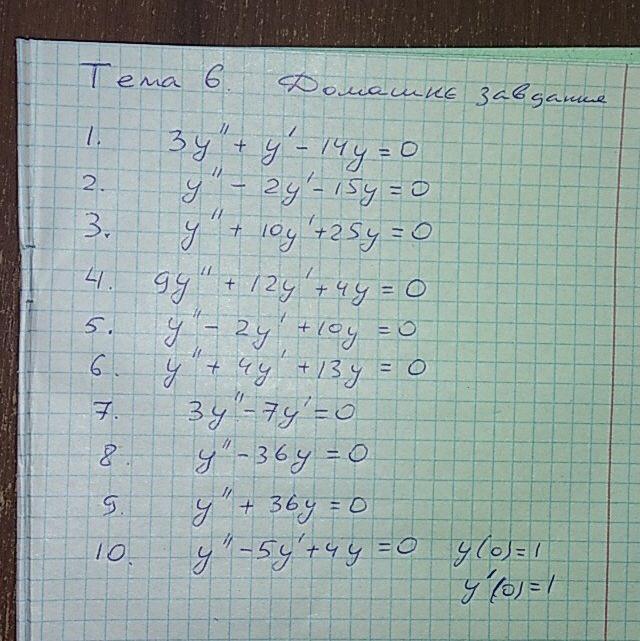 Тема 6. Домашнє завдання
1. 3y'' + y' - 14y = 0
2. y'' - 2y' - 15y = 0
3. y'' + 10y' + 25y = 0
4. 9y'' + 12y' + 4y = 0
5. y'' - 2y' + 10y = 0
6. y'' + 4y' + 13y = 0
7. 3y'' - 7y' = 0
8. y'' - 36y = 0
9. y'' + 36y = 0
10. y'' - 5y' + 4y = 0 y(0) = 1
y'(0) = 1